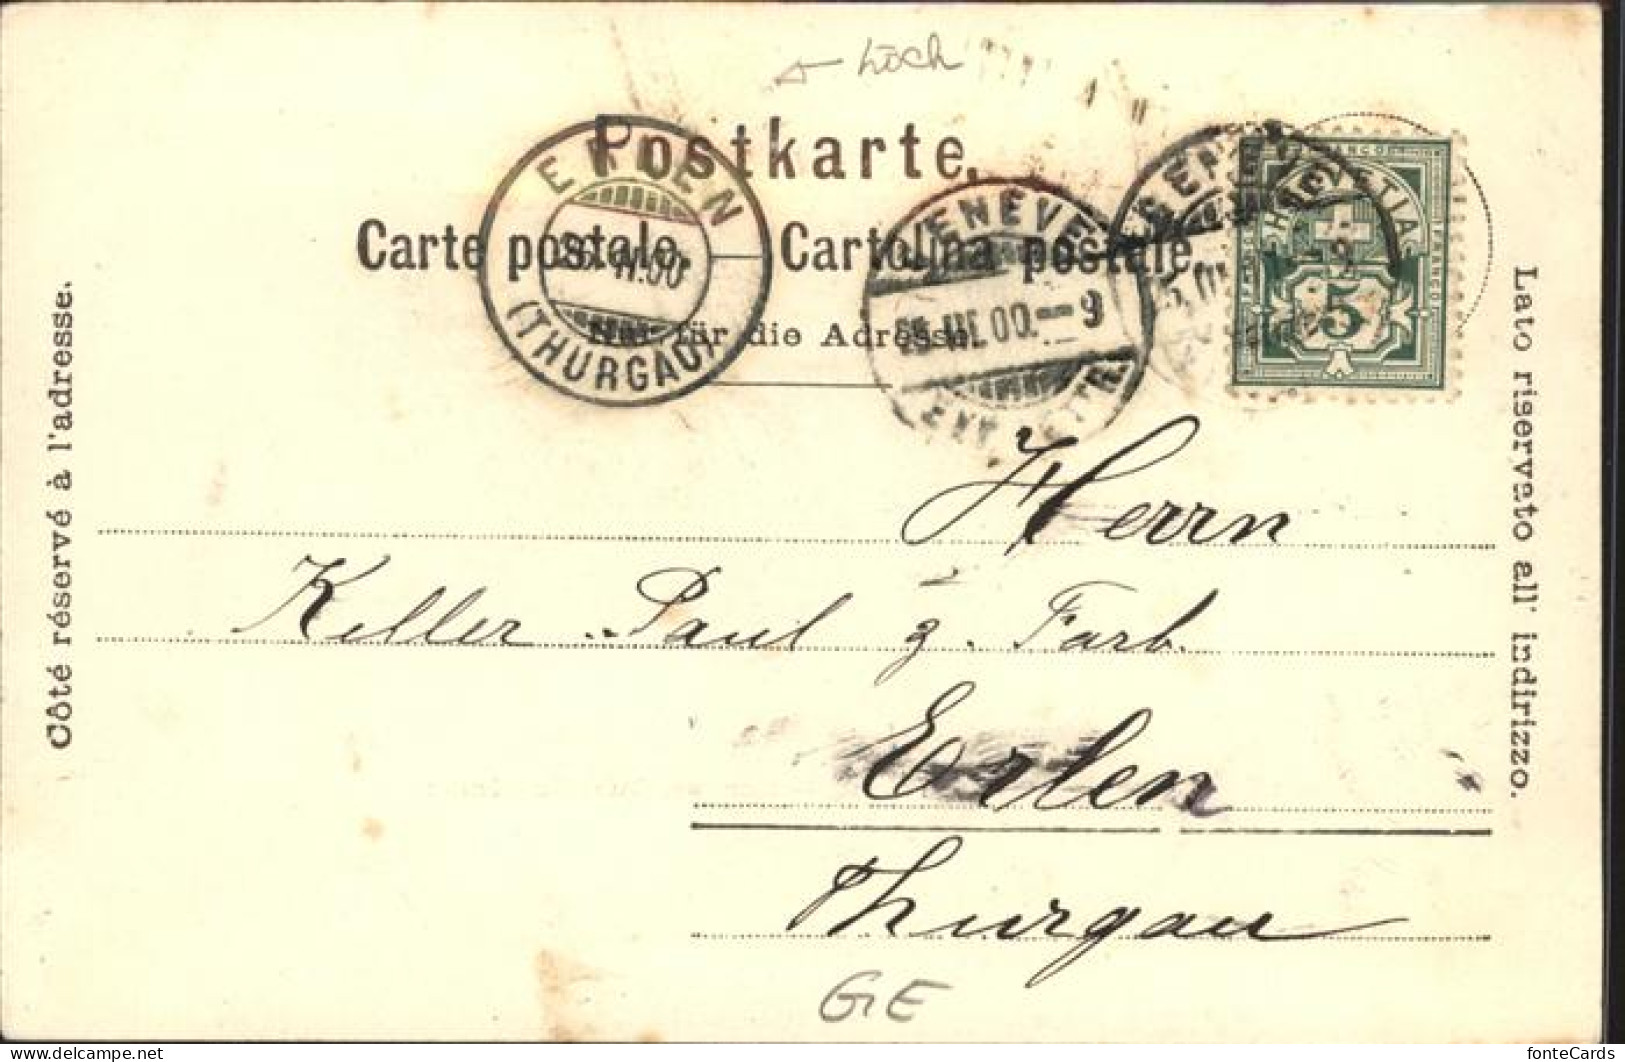 Löch
Postkarte.
Carte postale. — Cartolina postale.
Nur für die Adresse.
Côté réservé à l'adresse.
Lato riservato all' indirizzo.
ERLEN
(THURGAU)
GENÈVE
III.00.—9
GENÈVE
HELVETIA
FRANCO
FRANCO
5
Herrn
Keller Paul z. Farb.
Erlen
Thurgau
GE
delcampe.net
fonteCards